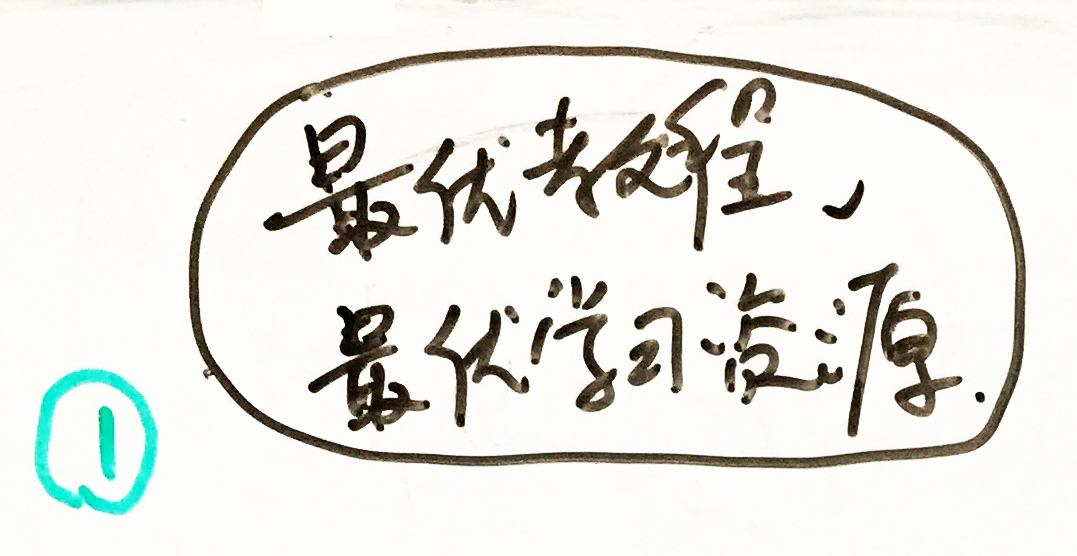 最优教程，
最优学习资源.
①